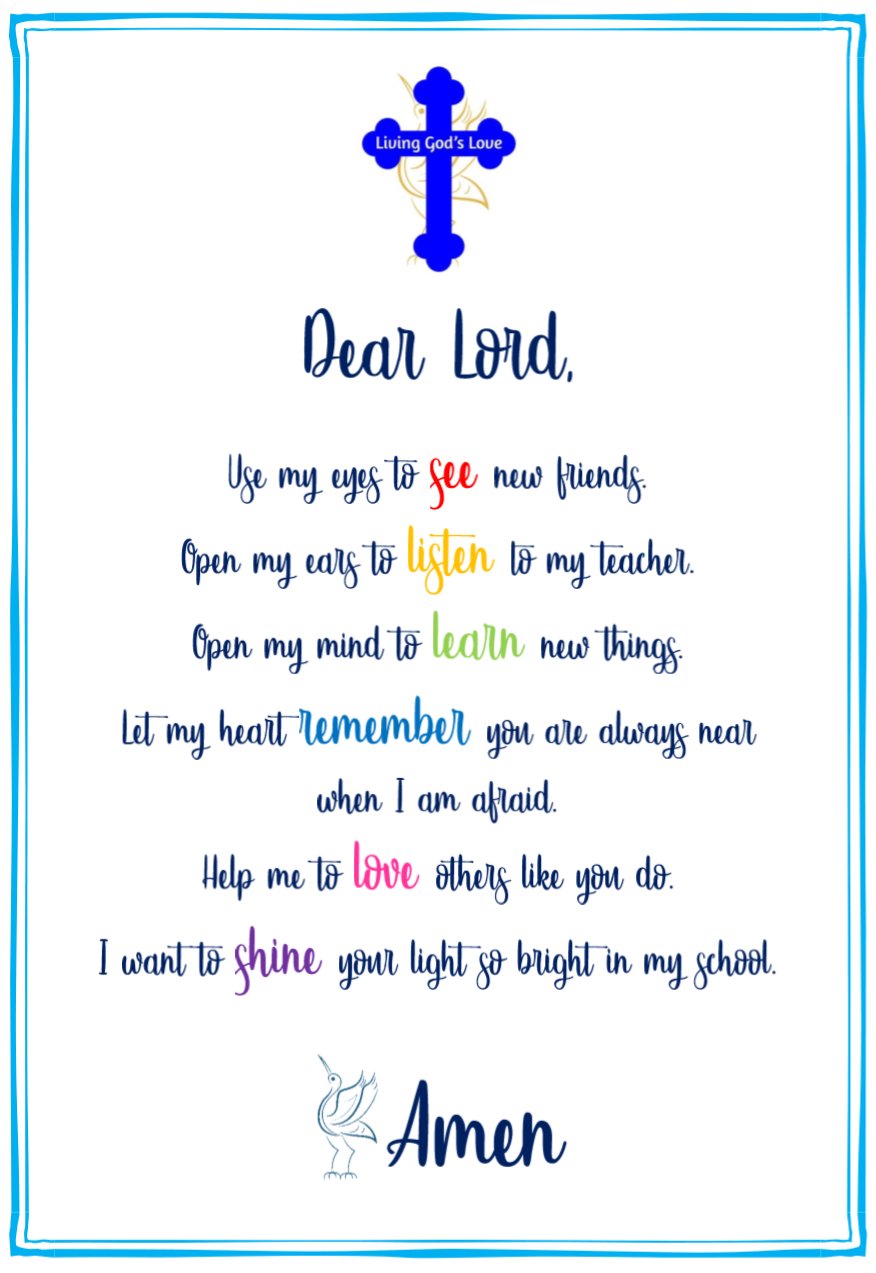 Living God's Love
Dear Lord,
Use my eyes to see new friends.
Open my ears to listen to my teacher.
Open my mind to learn new things.
Let my heart remember you are always near
when I am afraid.
Help me to love others like you do.
I want to shine your light so bright in my school.
Amen